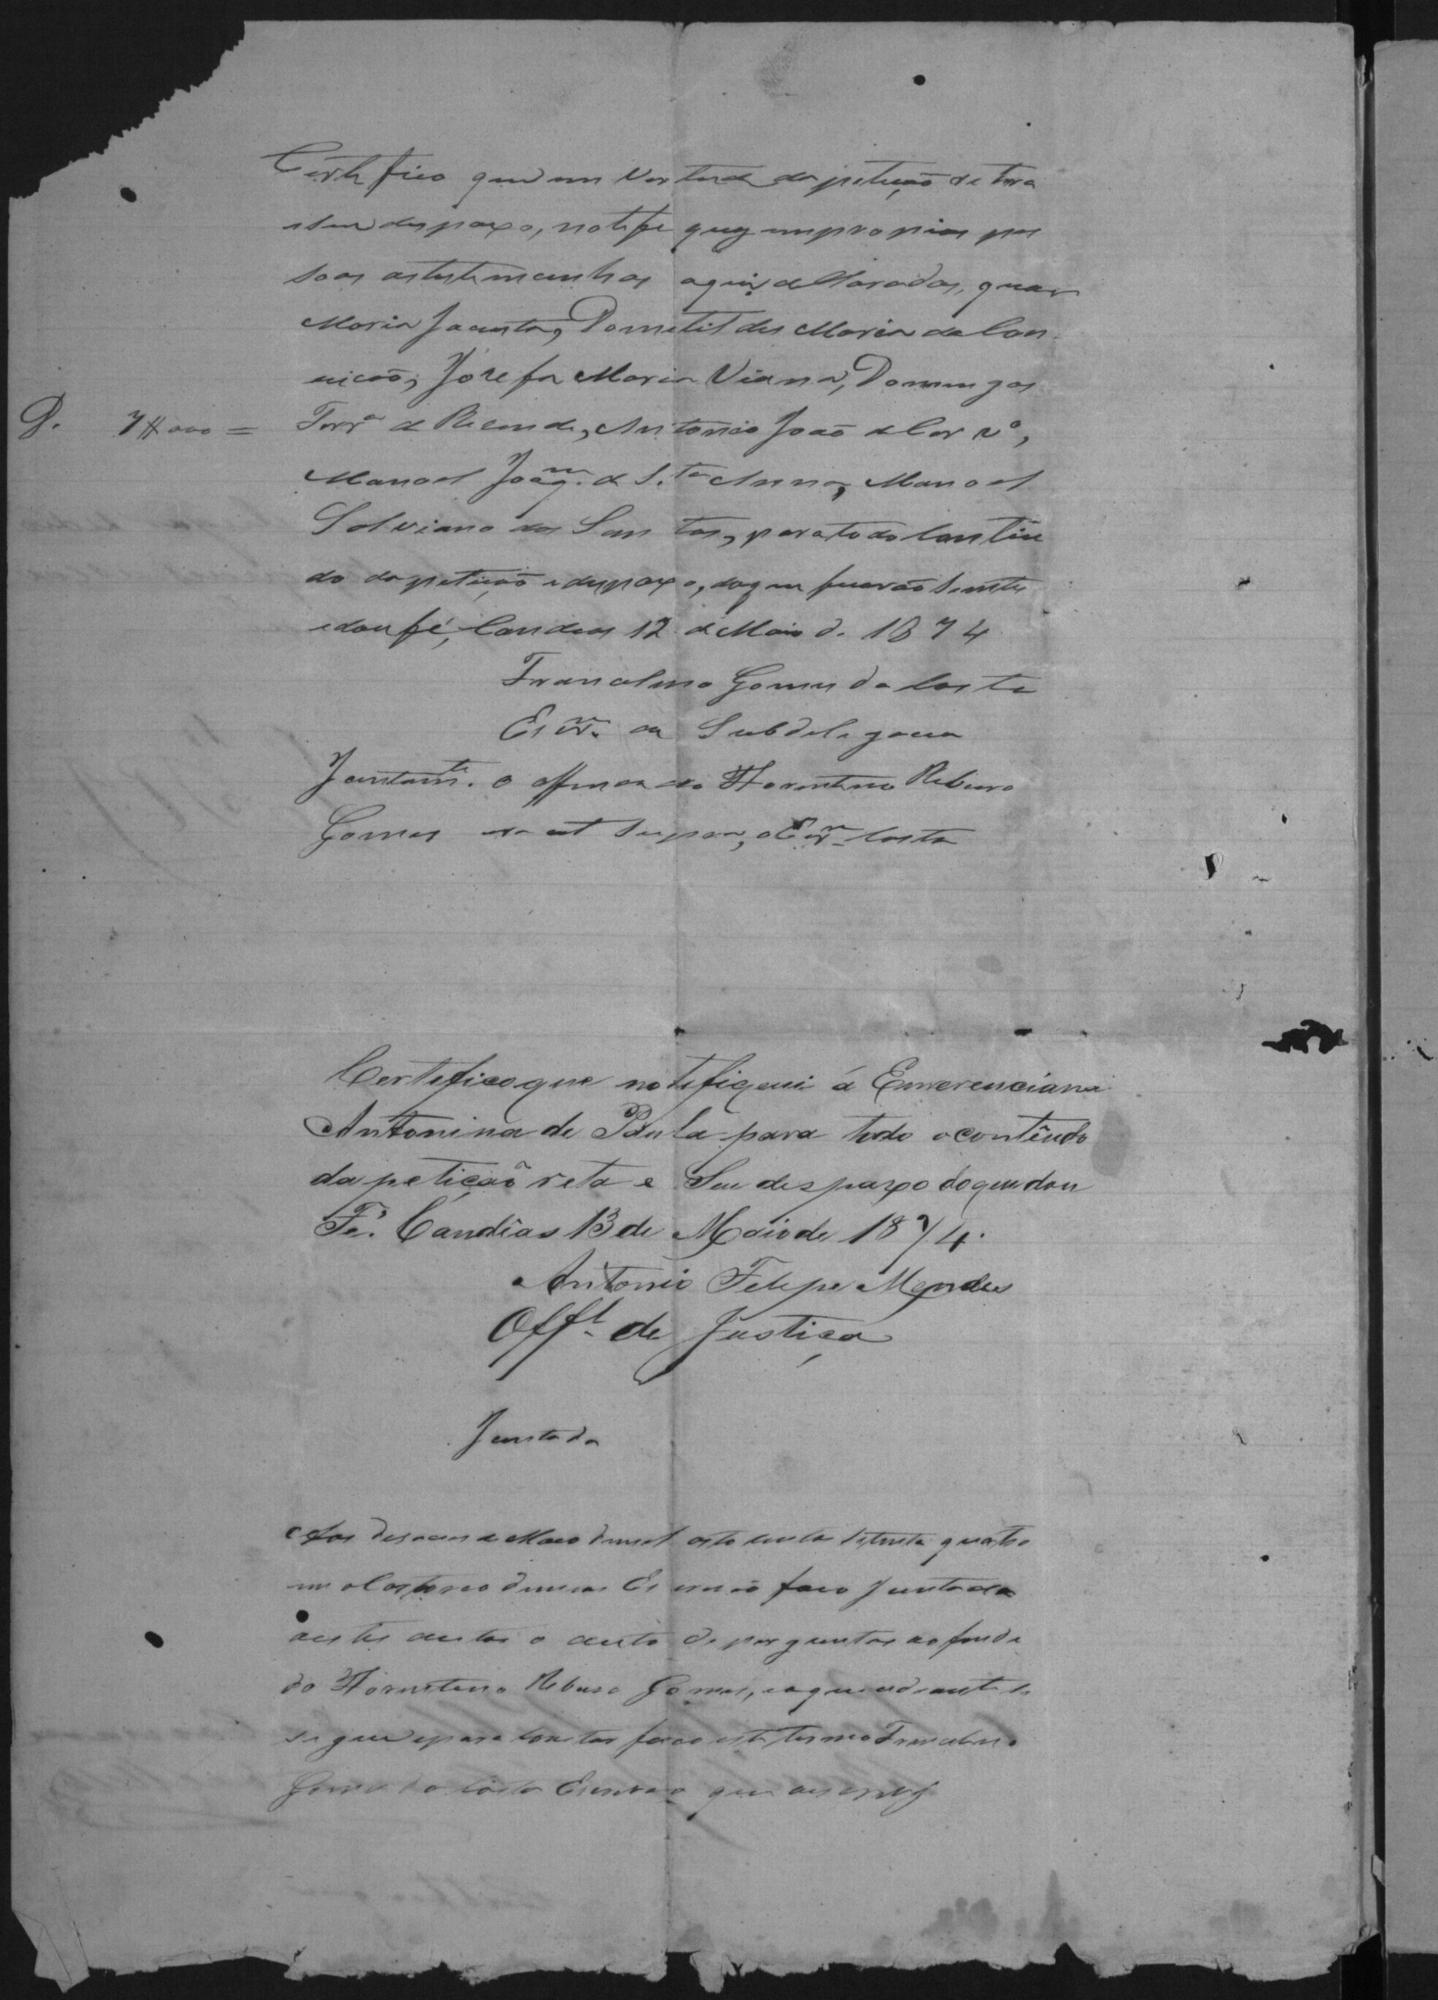 Certifico que em vertude da petição retra
e seu despaxo, notifi quey em proprias pes
soas as testemunhas aqui declaradas, quaes
Maria Jacinta, Dometildes Maria da Con
ceicão, Josefa Maria Viana, Domingos
D. 7#000 = Ferr.ª de Resende, Antonio João de
Manoel Joaq.m de S.ta Anna, Manoel
Salviano dos Santos, para todo contiu
do da petição e despaxo, do que ficarão sientes
e dou fé, Candeas 12 de Maio d. 1874
Francelino Gomes da Costa
Escr.m da Subdelegacia
Juntam.te o offendido Florentino Ribeiro
Gomes era ut supra, o Escr.m Costa
Certefico que notefiquei á Emerenciana
Antonina de Paula para todo o contêudo
da petição reta e Seu despaxo do que dou
Fé. Candêas 13 de Maio de 1874.
Antonio Felipe Mendes
Off.l de Justiça
Juntada
Aos de Maio de mil oito centos setenta quatro
em o Cartorio de meu Escrivão faco Juntada
aestes autos o auto de perguntas ao fendi
do Florentino Ribeiro Gomes, eo que adeante se
segue epara constar faco este termo Francelino
Gomes da Costa Escrivão que escrevy